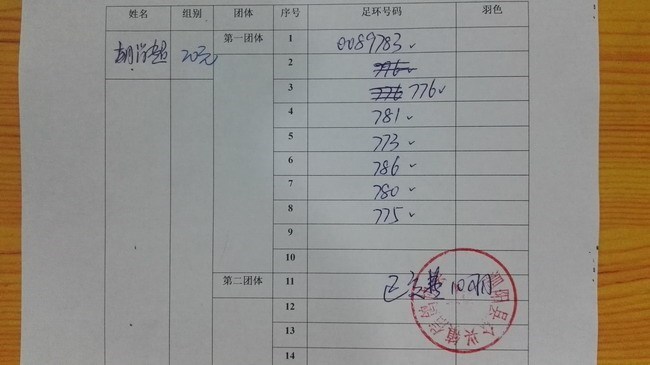 姓名 组别 团体 序号 足环号码 羽色
20元 第一团体 1 0089783✓
2 776✓
3 776 776✓
4 781✓
5 773✓
6 786✓
7 780✓
8 775✓
9
10
第二团体 11 已交费100
12
13
14